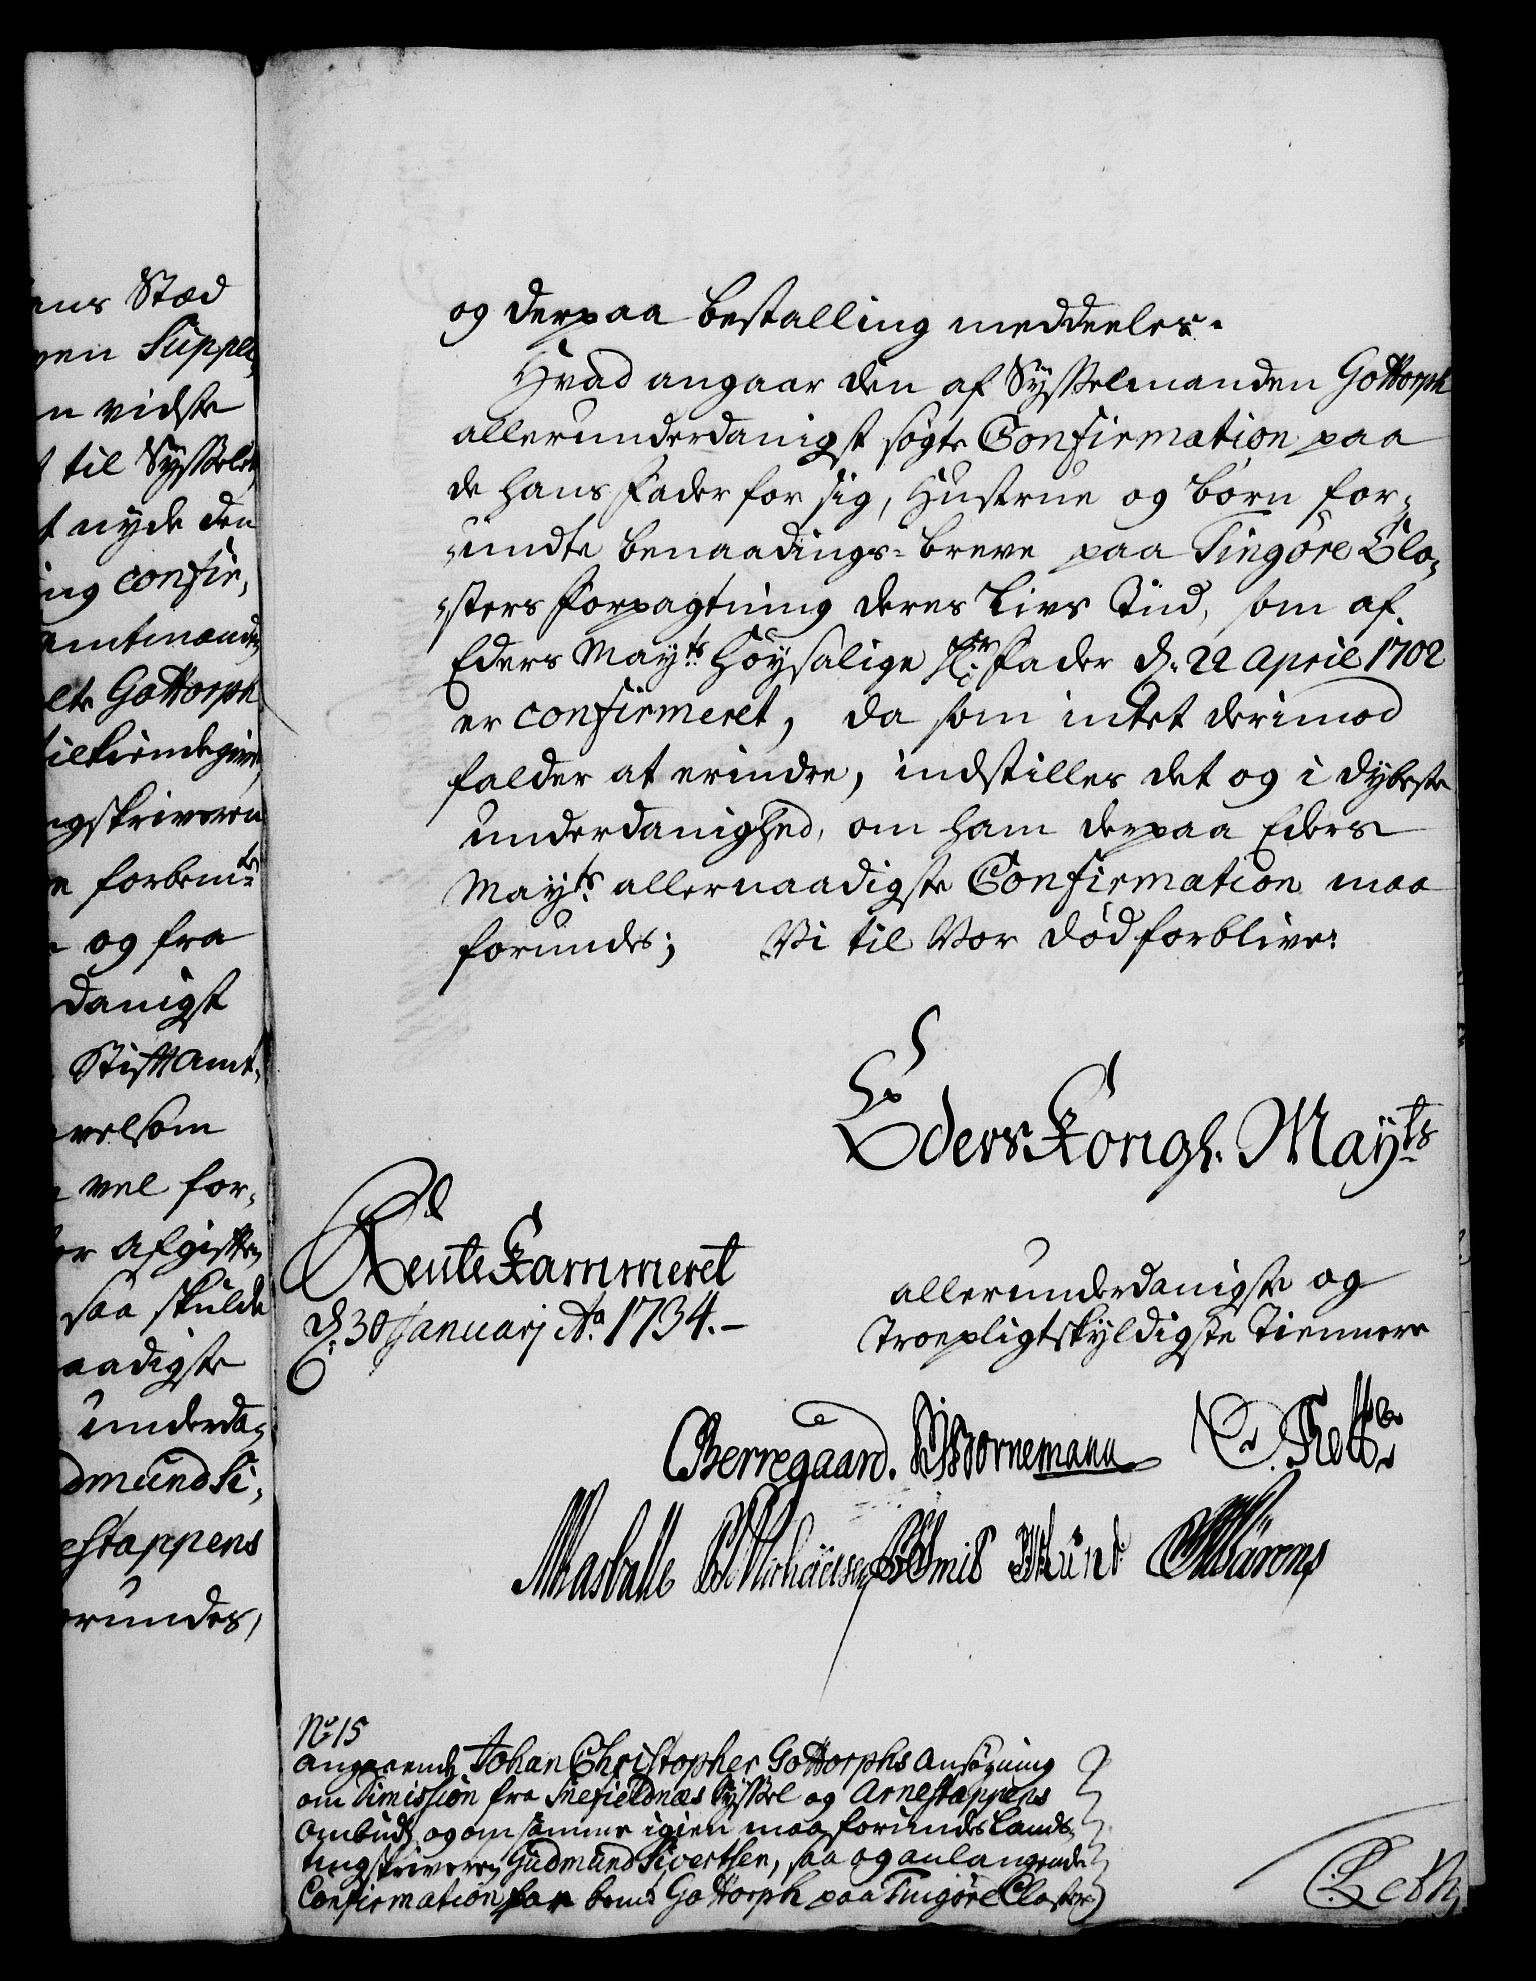 ans Stæd
ven Suppli,
n vidste
t til Sysselet
t nyde den
ing confir,
amtmandn
elte Gottorph
tilkiendegiver,
ngskriveren
e forbemte
og fra
danigst
StiftAmt,
velsom
vel for,
or Afgiften
saa skulde
aadigste
underda,
dmund Si,
estappens
orundes,
og derpaa bestalling meddeeles.
Hvad angaar den af Sysselmanden Gottorph
allerunderdanigst søgte Confirmation paa
de hans Fader for sig, Hustrue og børn for,
,undte benaadings=breve paa Tingøre Clo,
,sters Forpagtning deres Livs Tiid, som af
Eders Mayts. Høysalige Hr. Fader d. 22 April 1702
er confirmeret, da som intet derimod
falder at erindre, indstilles det og i dybeste
underdanighed, om ham derpaa Eders
Mayts. allernaadigste Confirmation maa
forundes; Vi til Vor død forblive:
Eders Kongl. Mayts
RenteKammeret
d. 30 Januarj Ao. 1734.–
allerunderdanigste og
Troepligtskyldigste Tiennere
CBerregaard. Bornemann
Masballe Michaelsen
No 15
angaaende Johan Christopher Gottorphs Ansøgning
om Dimission fra Snefieldnæs Syssel og Arnestappens
Ombud, og om samme igien maa forundes Lands,
tingskriveren Gudmund Sivertsen, saa og anlangende
Confirmation for bemte Gottorph paa Tingøre Closter